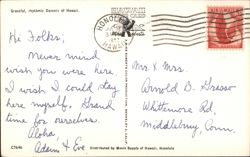 Graceful, rhythmic Dancers of Hawaii.
HONOLULU
HAWAII
Hi Folks;
Never mind
wish you were here
I wish I could stay
here myself. Grand
time for ourselves.
Aloha,
Adam & Eve
Mr. & Mrs.
Arnold D. Grasso
Whittemore Rd.
Middlebury Conn.
C7646
Distributed by Movie Supply of Hawaii, Honolulu